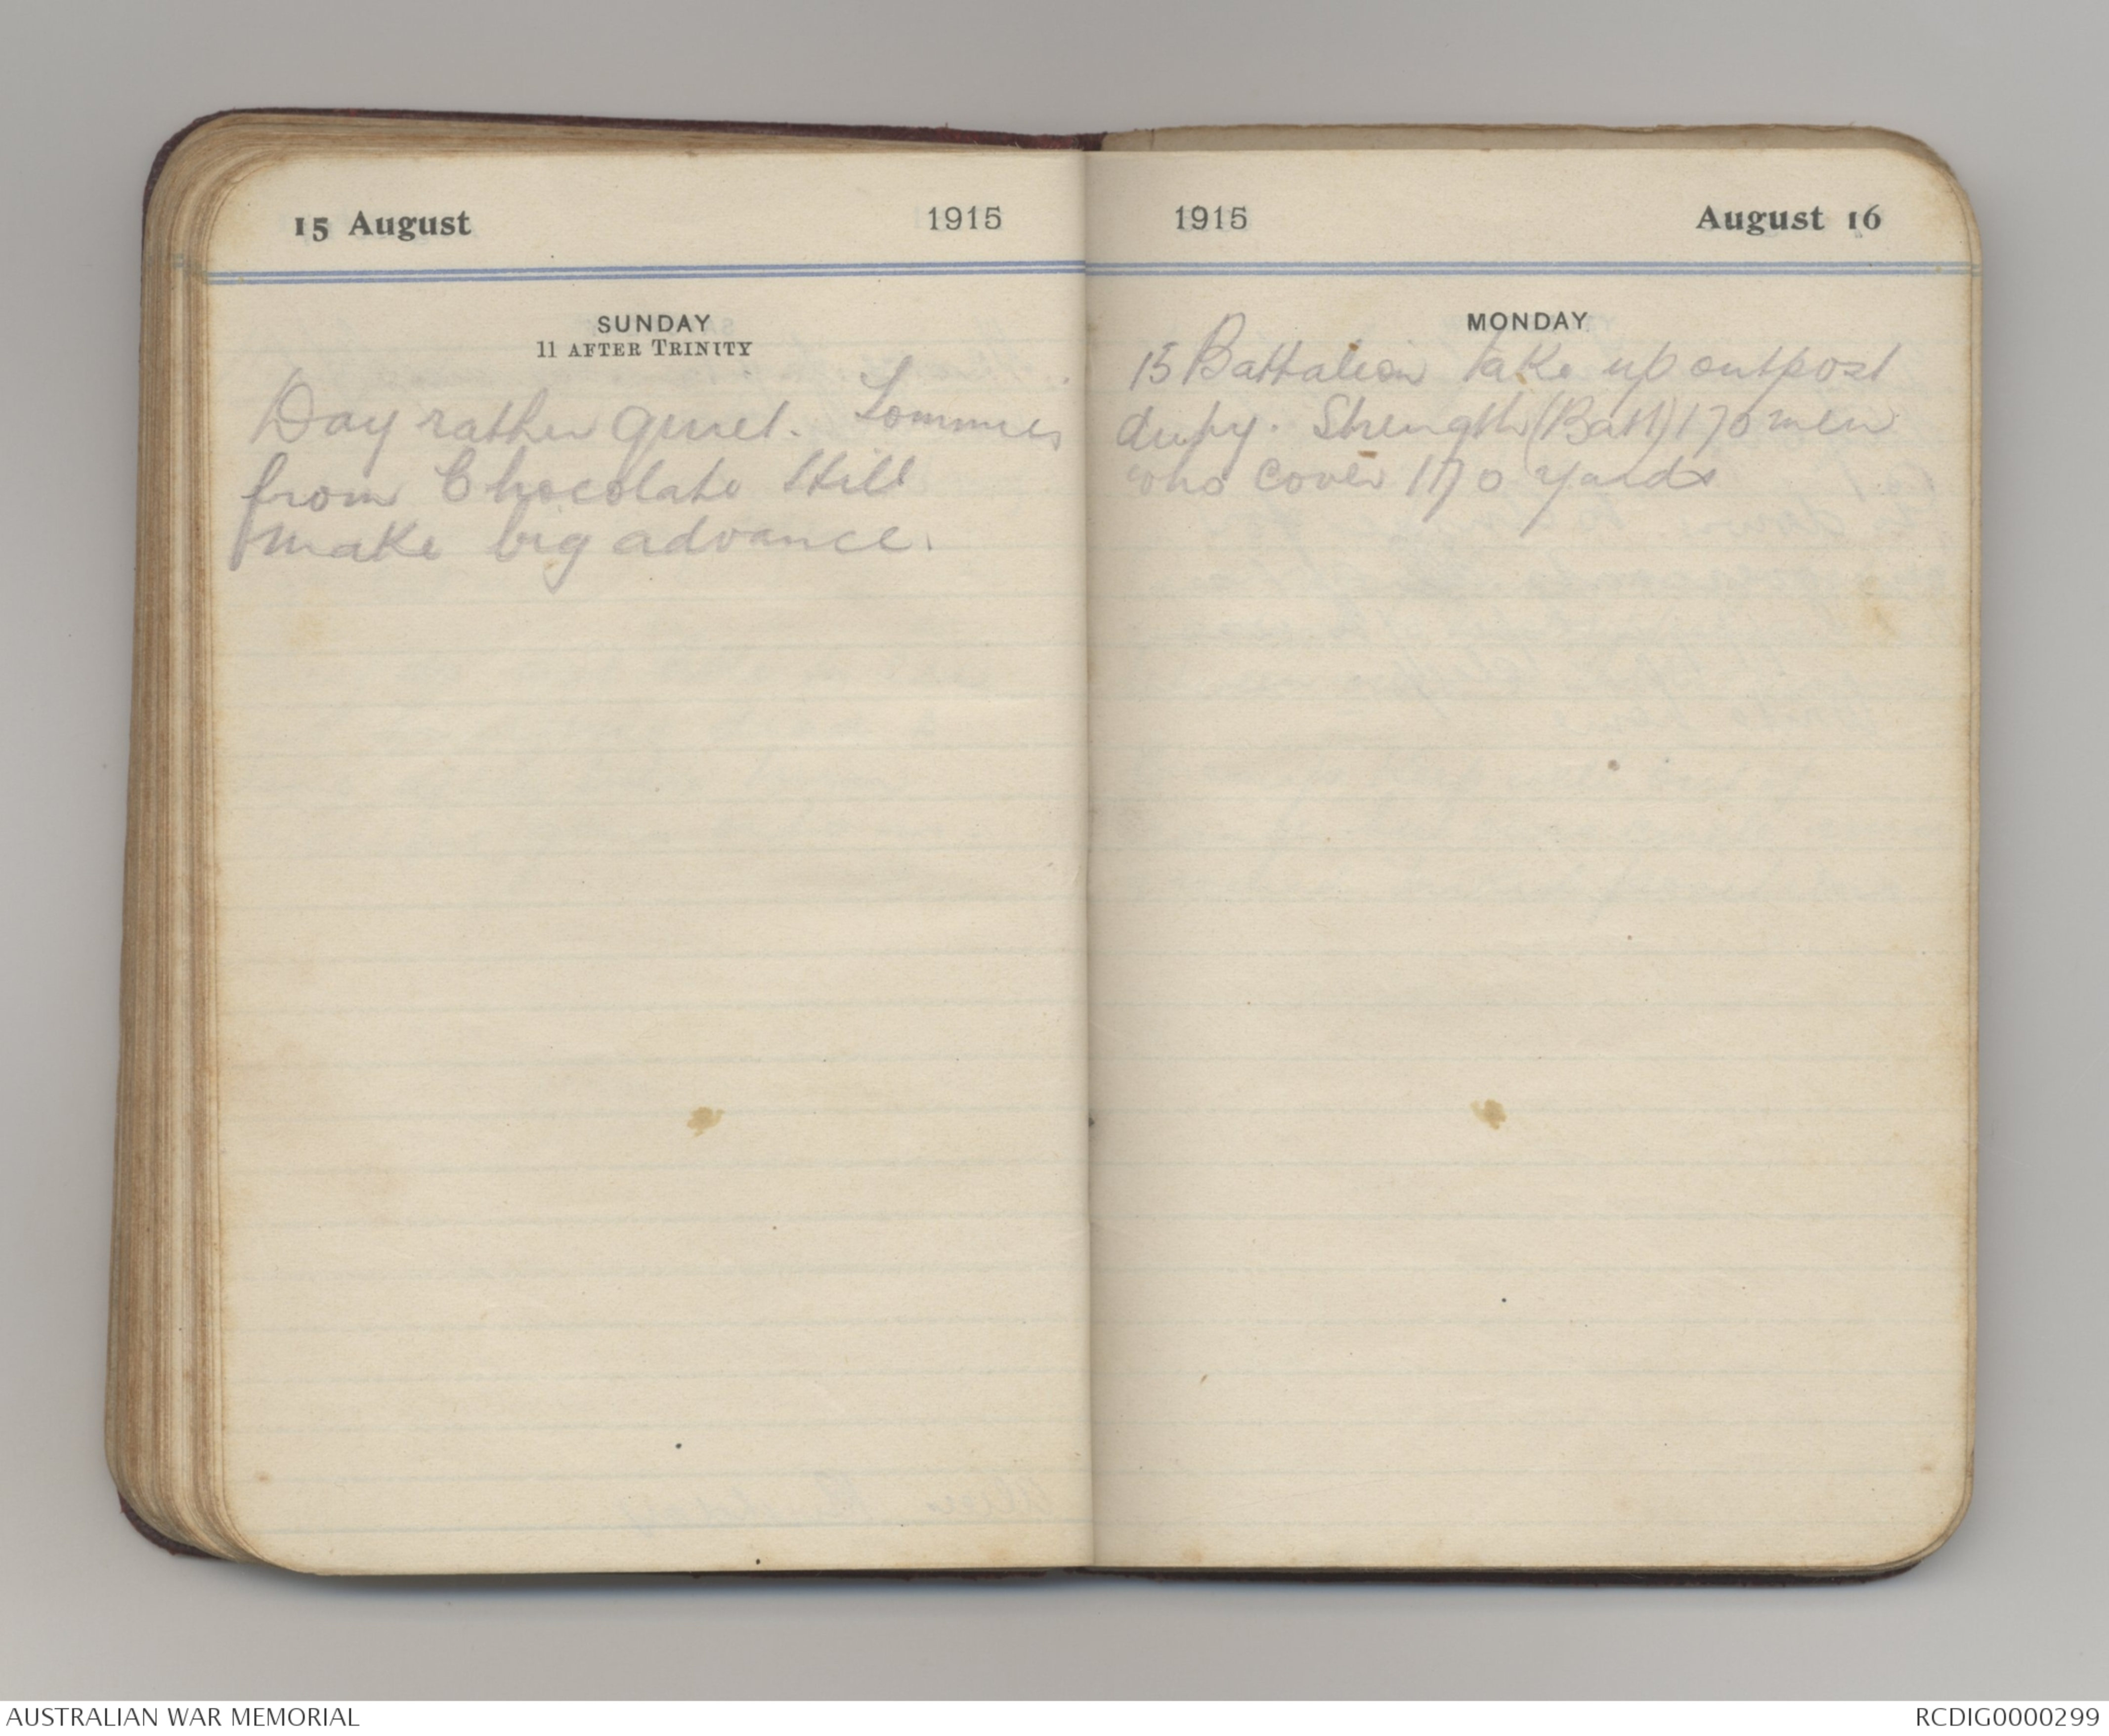 15 August 1915
SUNDAY
11 AFTER TRINITY
Day rather quiet. Tommies
from Chocolate Hill
make big advance.
1915 August 16
MONDAY
15 Battalion take up outpost
duty. Strength (Batt) 170 men
who cover 1170 yards
AUSTRALIAN WAR MEMORIAL
RCDIG0000299